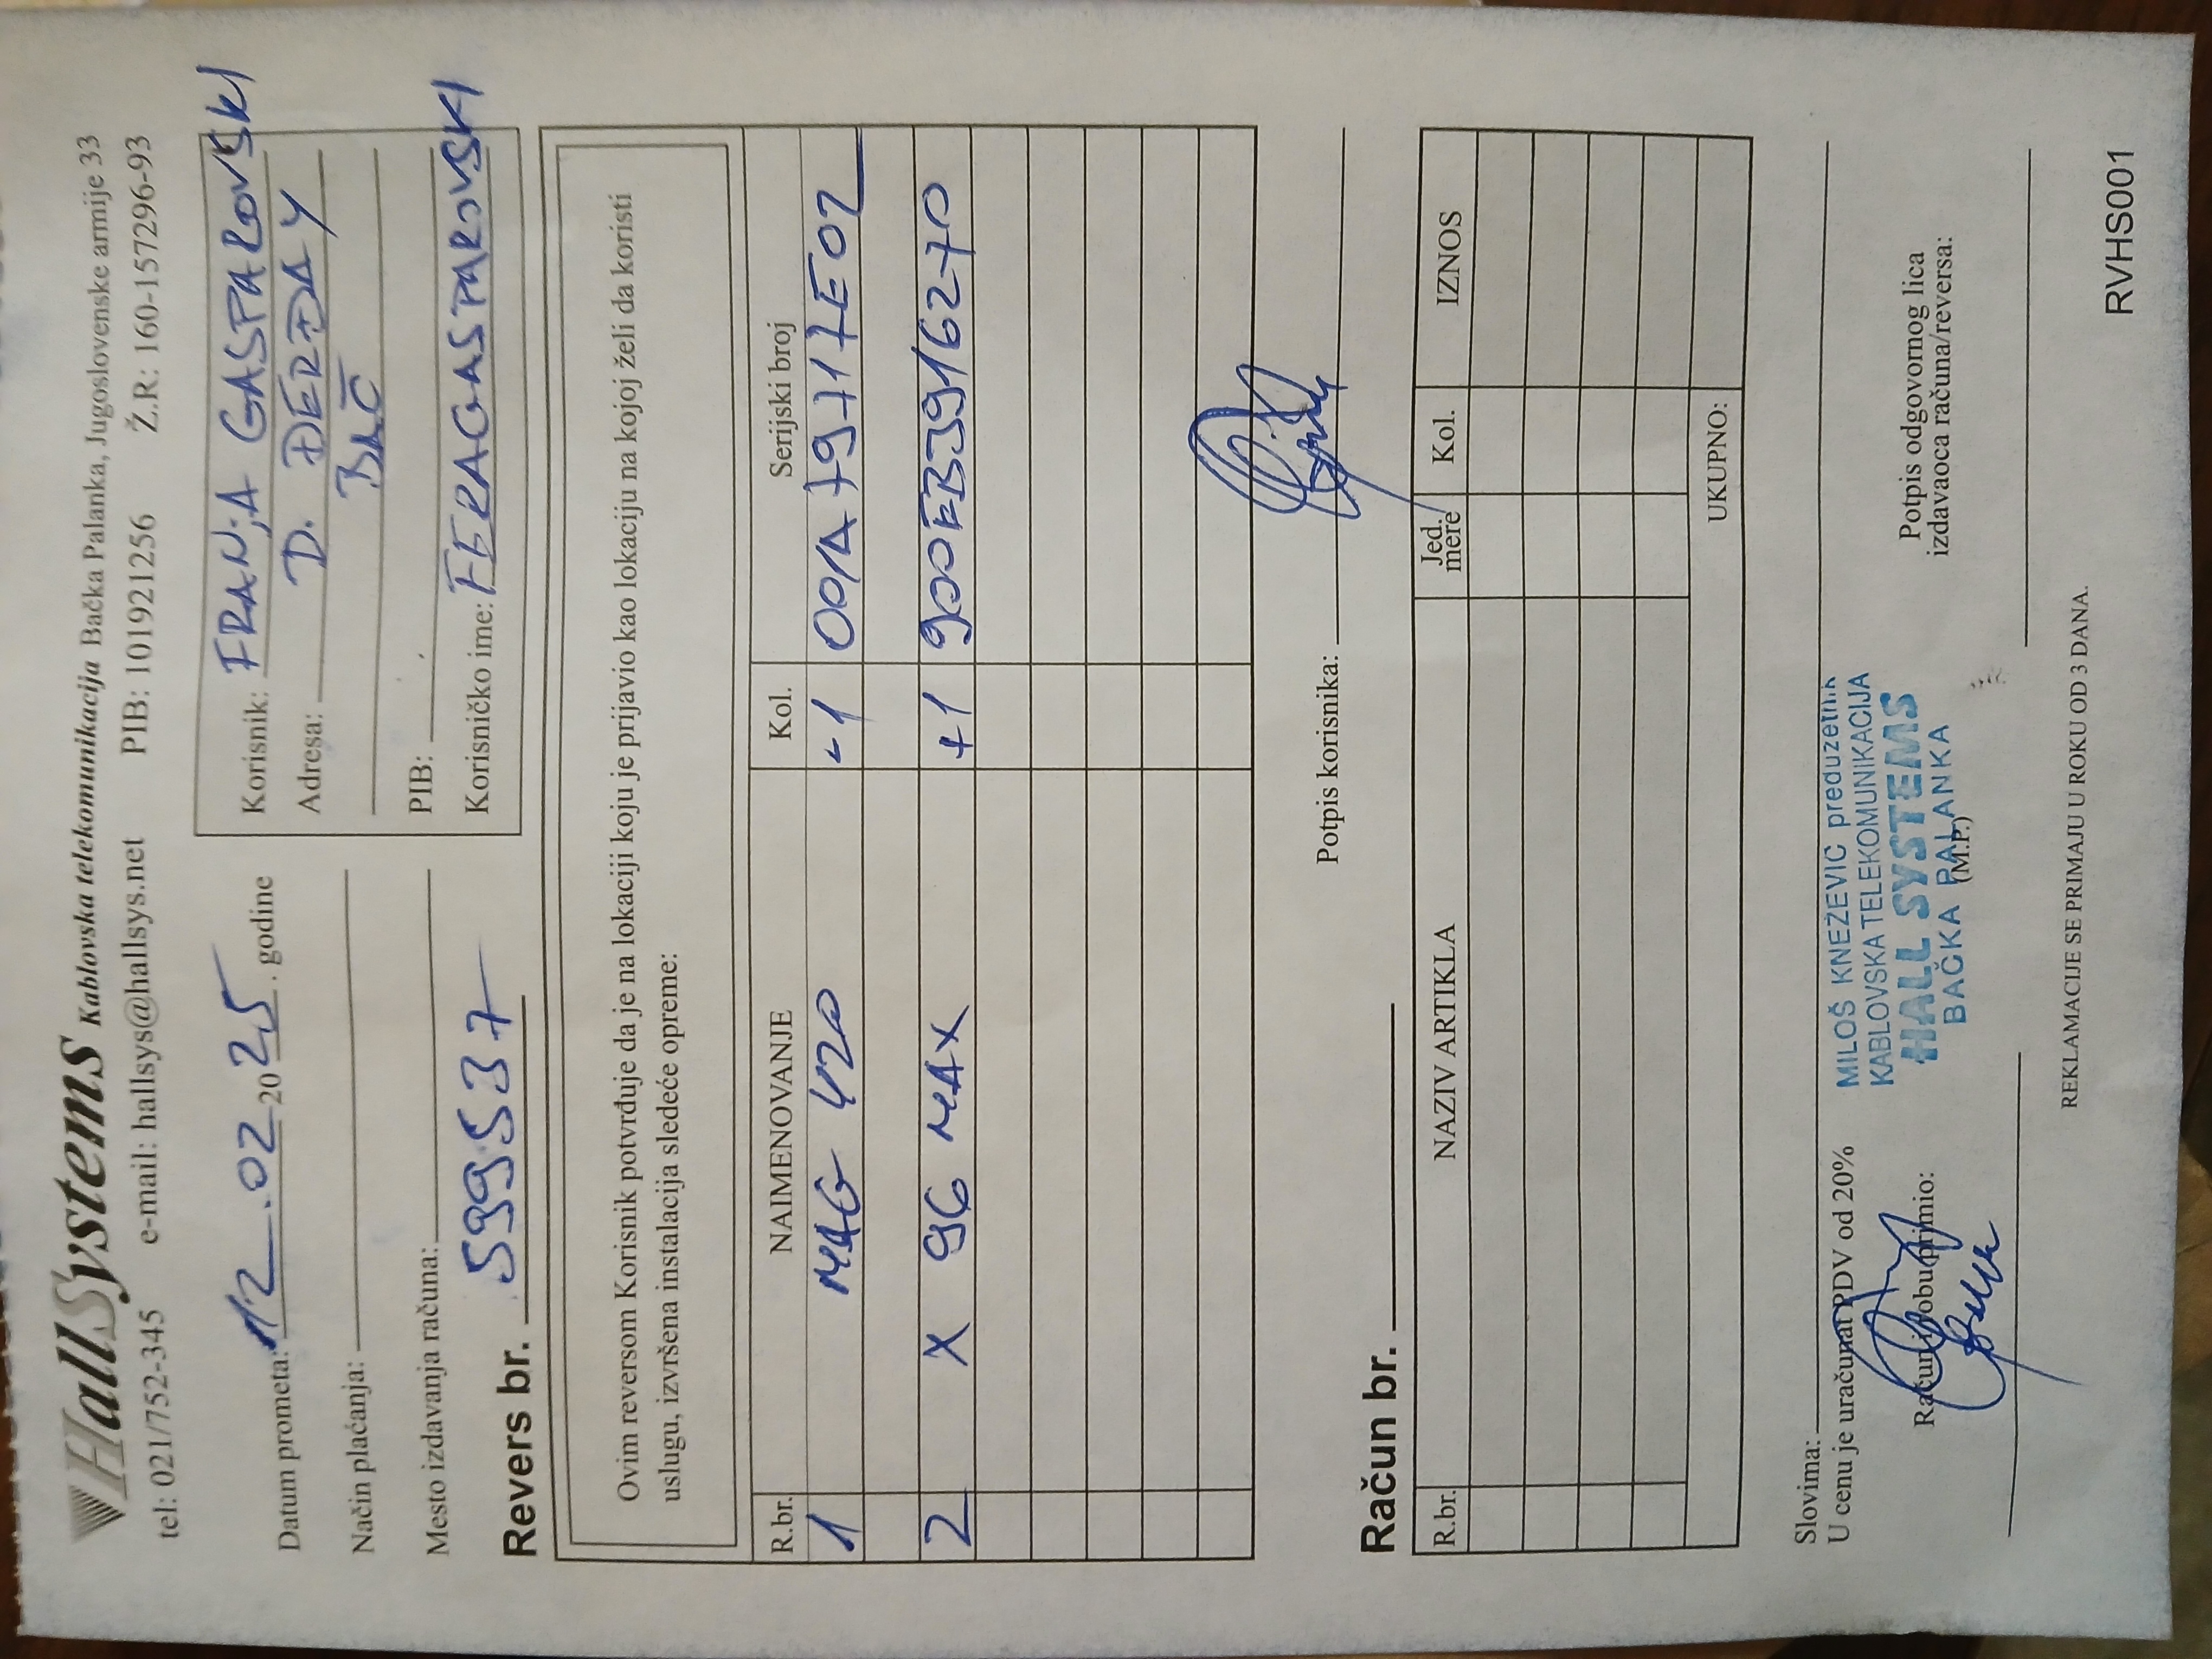 HallSystems Kablovska telekomunikacija Bačka Palanka, Jugoslovenske armije 33
tel: 021/752-345 e-mail: hallsys@hallsys.net PIB: 101921256 Ž.R: 160-1577296-93
Datum prometa: 12.02.2025. godine
Način plaćanja:
Mesto izdavanja računa:
Korisnik: FRANJA GASPAROVSKI
Adresa: D. ĐERĐA Y
BAČ
PIB:
Korisničko ime: FERAGASPAROVSKI
Revers br. 599537
Ovim reversom Korisnik potvrđuje da je na lokaciji koju je prijavio kao lokaciju na kojoj želi da koristi
uslugu, izvršena instalacija sledeće opreme:
R.br. NAIMENOVANJE Kol. Serijski broj
1 MAG 420 -1 001A79717E02
2 X 96 MAX +1 900EB3916270
Potpis korisnika:
Račun br.
R.br. NAZIV ARTIKLA Jed. mere Kol. IZNOS
UKUPNO:
Slovima:
U cenu je uračunat PDV od 20%
MILOŠ KNEŽEVIĆ preduzetnik
KABLOVSKA TELEKOMUNIKACIJA
HALL SYSTEMS
BAČKA PALANKA
(M.P.)
Račun i robu primio:
Potpis odgovornog lica
izdavaoca računa/reversa:
REKLAMACIJE SE PRIMAJU U ROKU OD 3 DANA.
RVHS001